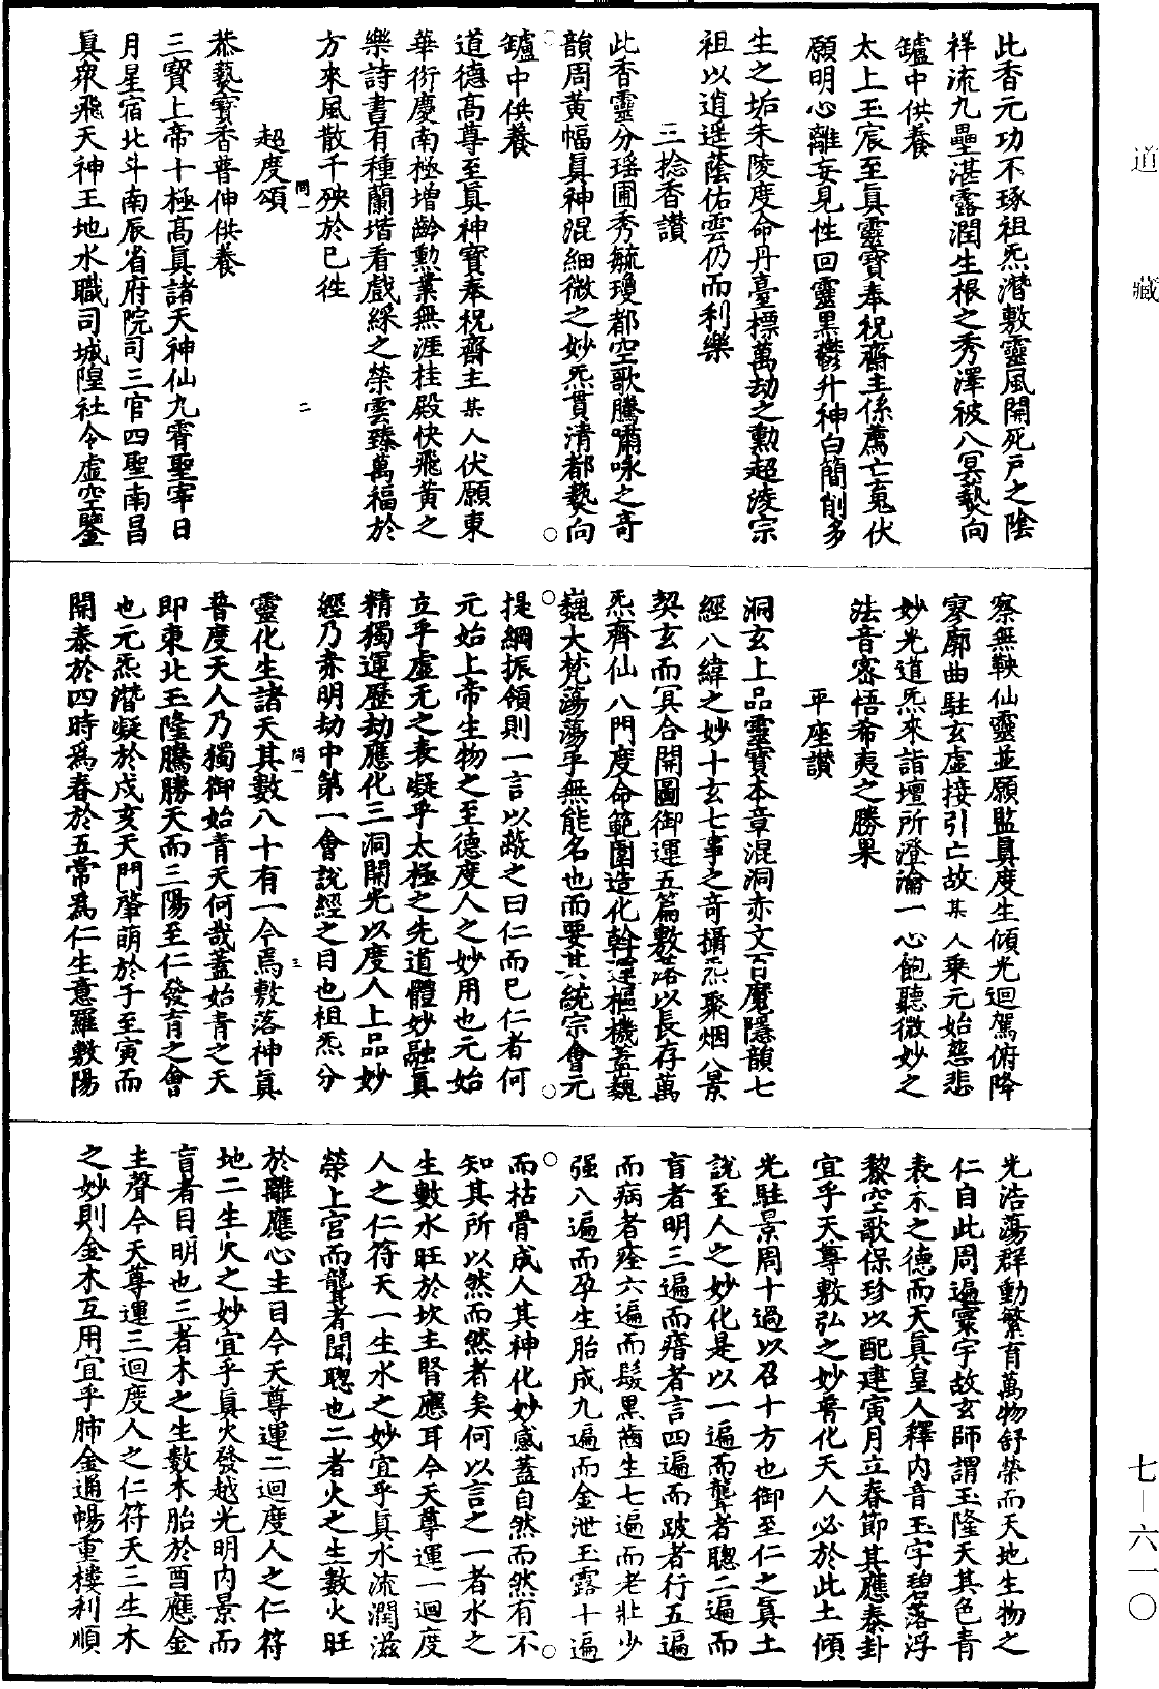 道藏
七—六一〇
此香元功不琢祖炁潛敷靈風開死戸之陰
祥流九壘湛露潤生根之秀澤被八冥爇向
罏中供養
太上玉宸至眞靈寶奉祝齋主係薦亡䰟伏
願明心離妄見性回靈黒鬱升神白簡削多
生之垢朱陵度命丹臺標萬劫之勲超淩宗
祖以逍遥蔭佑雲仍而利樂
三捻香讃
此香靈分瑶圃秀毓瓊都空歌騰嘯咏之竒
韻周黄幅眞神混細微之妙炁貫清都爇向
罏中供養
道德高尊至眞神寶奉祝齋主某人伏願東
華衍慶南極增齡勲業無涯桂殿快飛黄之
樂詩書有種蘭堦看戲綵之榮雲臻萬福於
方來風散千殃於已徃
問一
二
超度頌
恭爇寳香普伸供養
三寳上帝十極高眞諸天神仙九霄聖宰日
月星宿北斗南辰省府院司三官四聖南昌
眞衆飛天神王地水職司城隍社令虚空鑒
察無鞅仙靈並願監眞度生傾光迴駕俯降
寥廓曲駐玄虚接引亡故某人乗元始慈悲
妙光道炁來詣壇所澄瀹一心飽聽微妙之
法音密悟希夷之勝果
平座讃
洞玄上品靈寳本章混洞赤文百魔隱韻七
經八緯之妙十玄七事之竒攝炁聚烟八景
契玄而冥合開圖御運五篇敷落以長存萬
炁齊仙八門度命範圍造化斡運樞機葢巍
巍大梵蕩蕩乎無能名也而要其統宗會元
提綱振領則一言以蔽之曰仁而已仁者何
元始上帝生物之至德度人之妙用也元始
立乎虚无之表凝乎太極之先道體妙融眞
精獨運歴劫應化三洞開光以度人上品妙
經乃赤明劫中第一會說經之目也祖炁分
問一
三
靈化生諸天其數八十有一今焉敷落神眞
普度天人乃獨御始青天何哉蓋始青之天
即東北玉隆騰勝天而三陽至仁發育之會
也元炁潛凝於戌亥天門肇萌於子至寅而
開泰於四時爲春於五常爲仁生意羅敷陽
光浩蕩群動繁育萬物舒榮而天地生物之
仁自此周遍寰宇故玄師謂玉隆天其色青
表木之德而天真皇人釋内音玉字碧落浮
黎空歌保珍以配建寅月立春節其應泰卦
宜乎天尊敷弘之妙育化天人必於此土傾
光駐景周十過以召十方也御至仁之眞土
說至人之妙化是以一遍而聾者聰二遍而
盲者明三遍而瘖者言四遍而跛者行五遍
而病者痊六遍而髮黒齒生七遍而老壯少
强八遍而孕生胎成九遍而金泄玉露十遍
而枯骨成人其神化妙感蓋自然而然有不
知其所以然而然者矣何以言之一者水之
生數水旺於坎主腎應耳今天尊運一迴度
人之仁符天一生水之妙宜乎眞水流潤滋
榮上宫而聾者聞聰也二者火之生數火旺
於離應心主目今天尊運二迴度人之仁符
地二生火之妙宜乎眞火發越光明内景而
盲者目明也三者木之生數木胎於酉應金
主聲今天尊運三迴度人之仁符天三生木
之妙則金木互用宜乎肺金通暢重樓利順